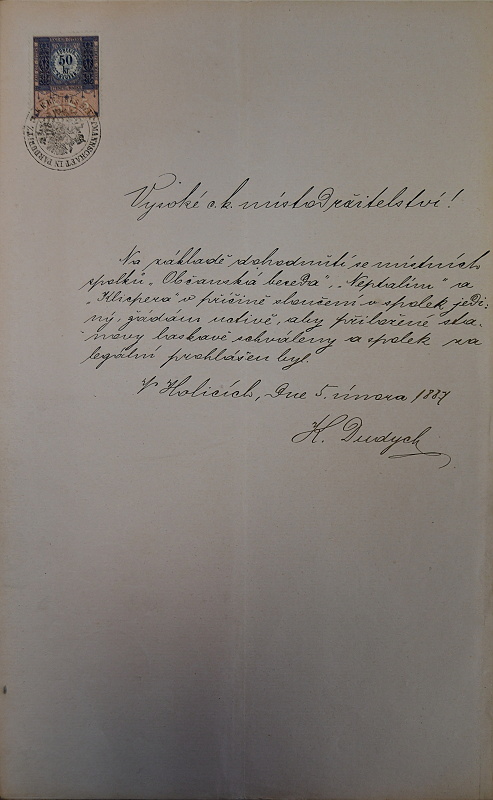 50
kr
MANNSCHAFT IN PARDUBITZ
Vysoké c. k. místodržitelství!
Na základě dohodnutí se místních
spolků „Občanská beseda", „Neptalim" a
„Klicpera" v příčině sloučení v spolek jedi-
ný, žádám uctivě, aby přiložené sta-
novy laskavě schváleny a spolek za
legální prohlášen byl.
V Holicích, dne 5. února 1887
K. Dudych